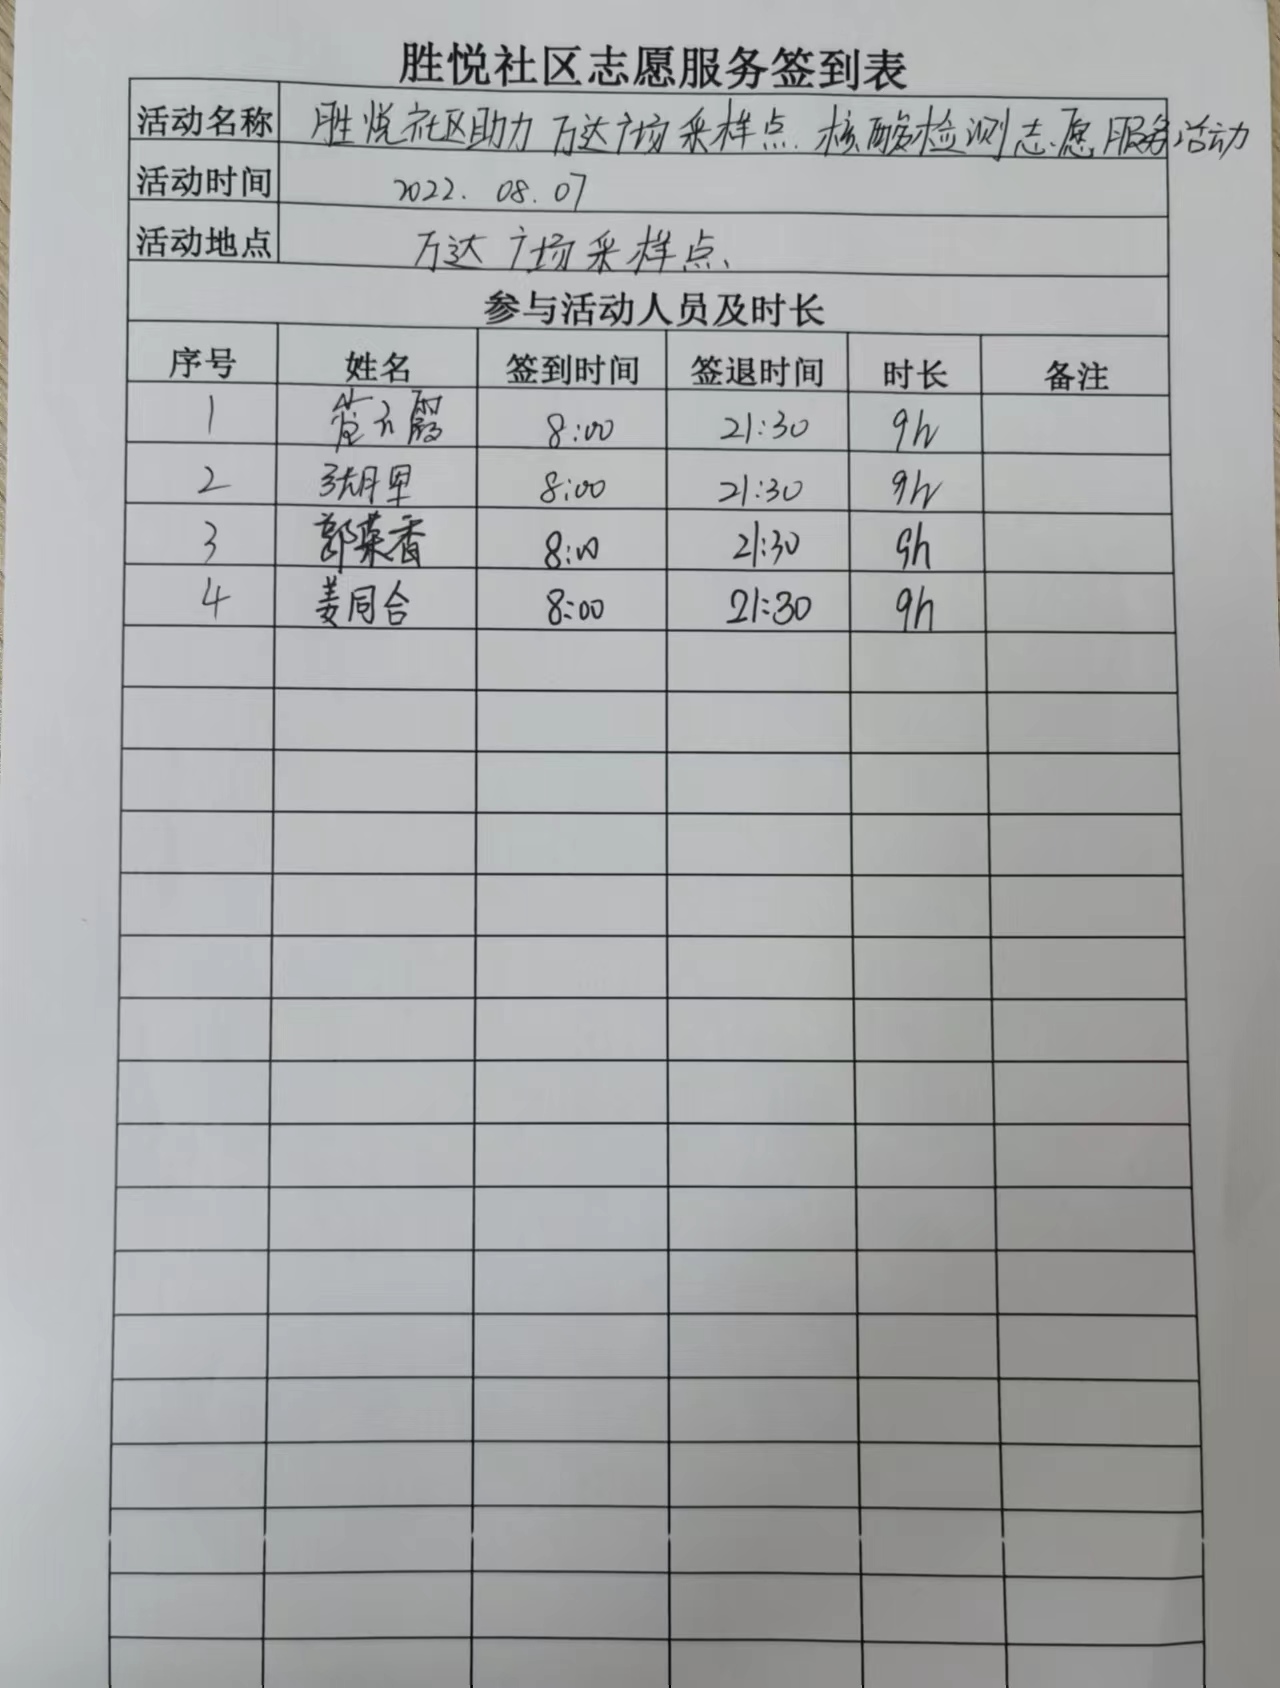 胜悦社区志愿服务签到表
活动名称 胜悦社区助力万达广场采样点.核酸检测志愿服务活动
活动时间 2022.08.07
活动地点 万达广场采样点、
参与活动人员及时长
序号 姓名 签到时间 签退时间 时长 备注
1 8:00 21:30 9h
2 8:00 21:30 9h
3 郭荣香 8:00 21:30 9h
4 姜同合 8:00 21:30 9h